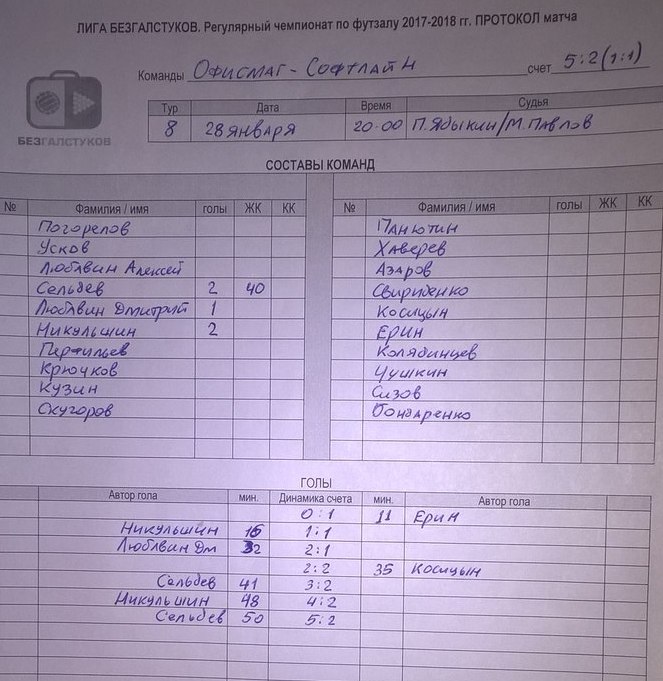 ЛИГА БЕЗГАЛСТУКОВ. Регулярный чемпионат по футзалу 2017-2018 гг. ПРОТОКОЛ матча
Команды Офисмаг - Софтлайн счет 5:2 (1:1)
БЕЗГАЛСТУКОВ
Тур Дата Время Судья
8 28 января 20-00 П.Ядыкин/М.Павлов
СОСТАВЫ КОМАНД
№ Фамилия / имя голы ЖК КК № Фамилия / имя голы ЖК КК
Погорелов Панютин
Усков Хаверев
Любавин Алексей Азаров
Сельдев 2 40 Свириденко
Любавин Дмитрий 1 Косицын
Никульшин 2 Ерин
Перфильев Колядинцев
Крючков Чушкин
Кузин Сизов
Скугоров Бондаренко
ГОЛЫ
Автор гола мин. Динамика счета мин. Автор гола
0:1 11 Ерин
Никульшин 16 1:1
Любавин Дм 32 2:1
2:2 35 Косицын
Сельдев 41 3:2
Никульшин 48 4:2
Сельдев 50 5:2